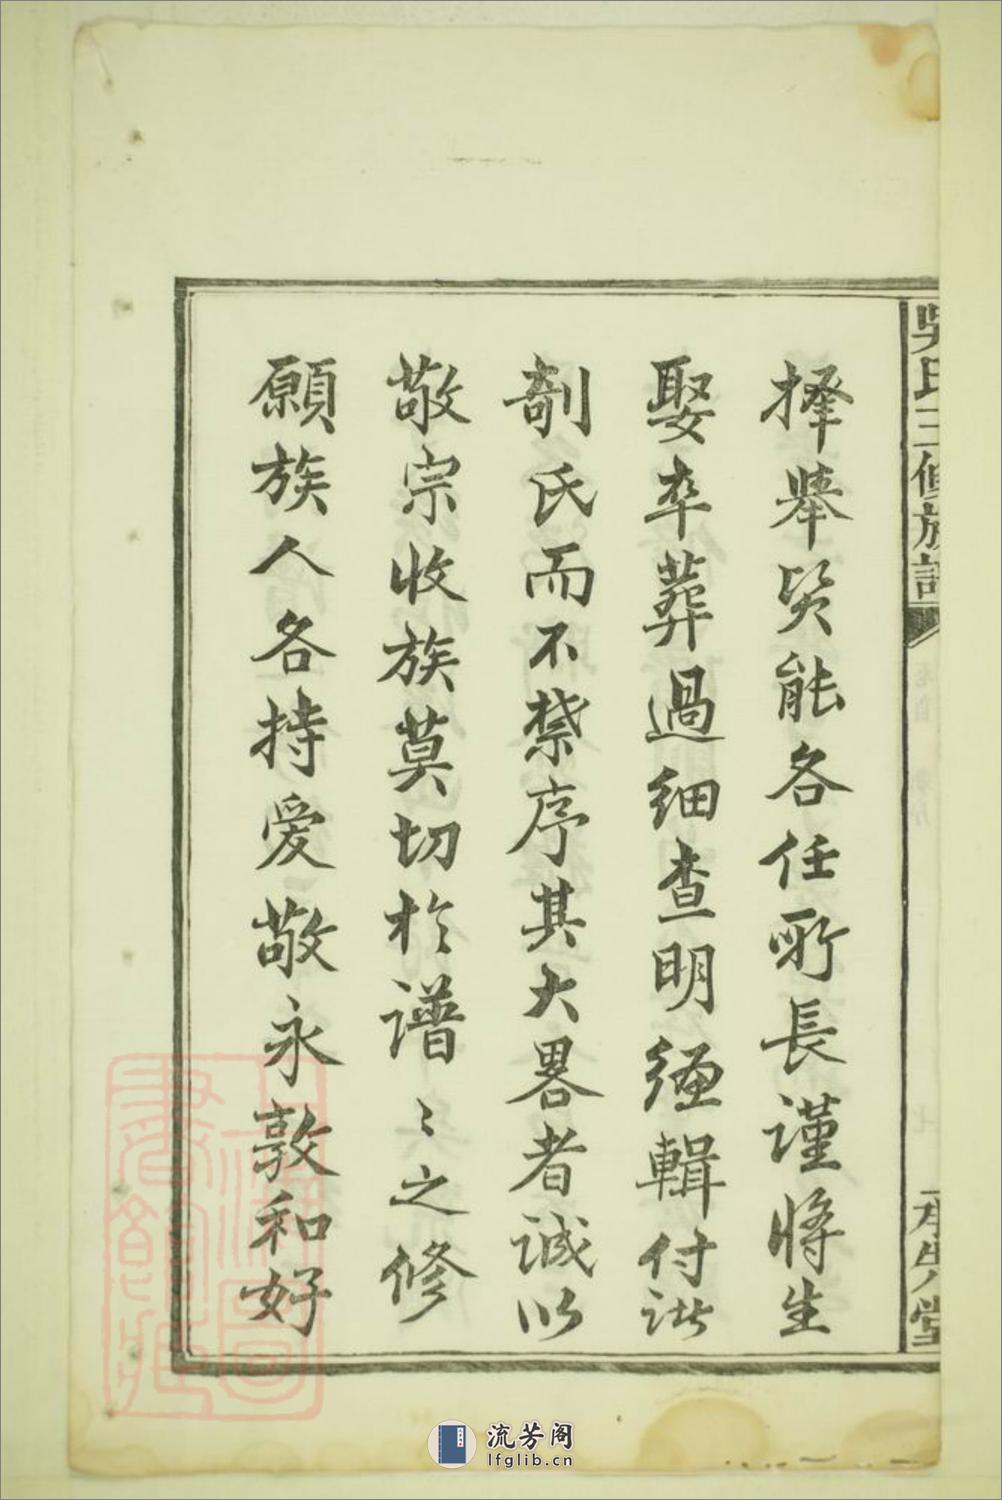 吳氏三修族譜
承先堂
擇舉賢能各任所長謹將生
娶卒葬過細查明編輯付諸
剞氏而不禁序其大畧者誠以
敬宗收族莫切於譜〻之修
願族人各持爱敬永敦和好
上海圖書館藏
流芳阁
lfglib.cn